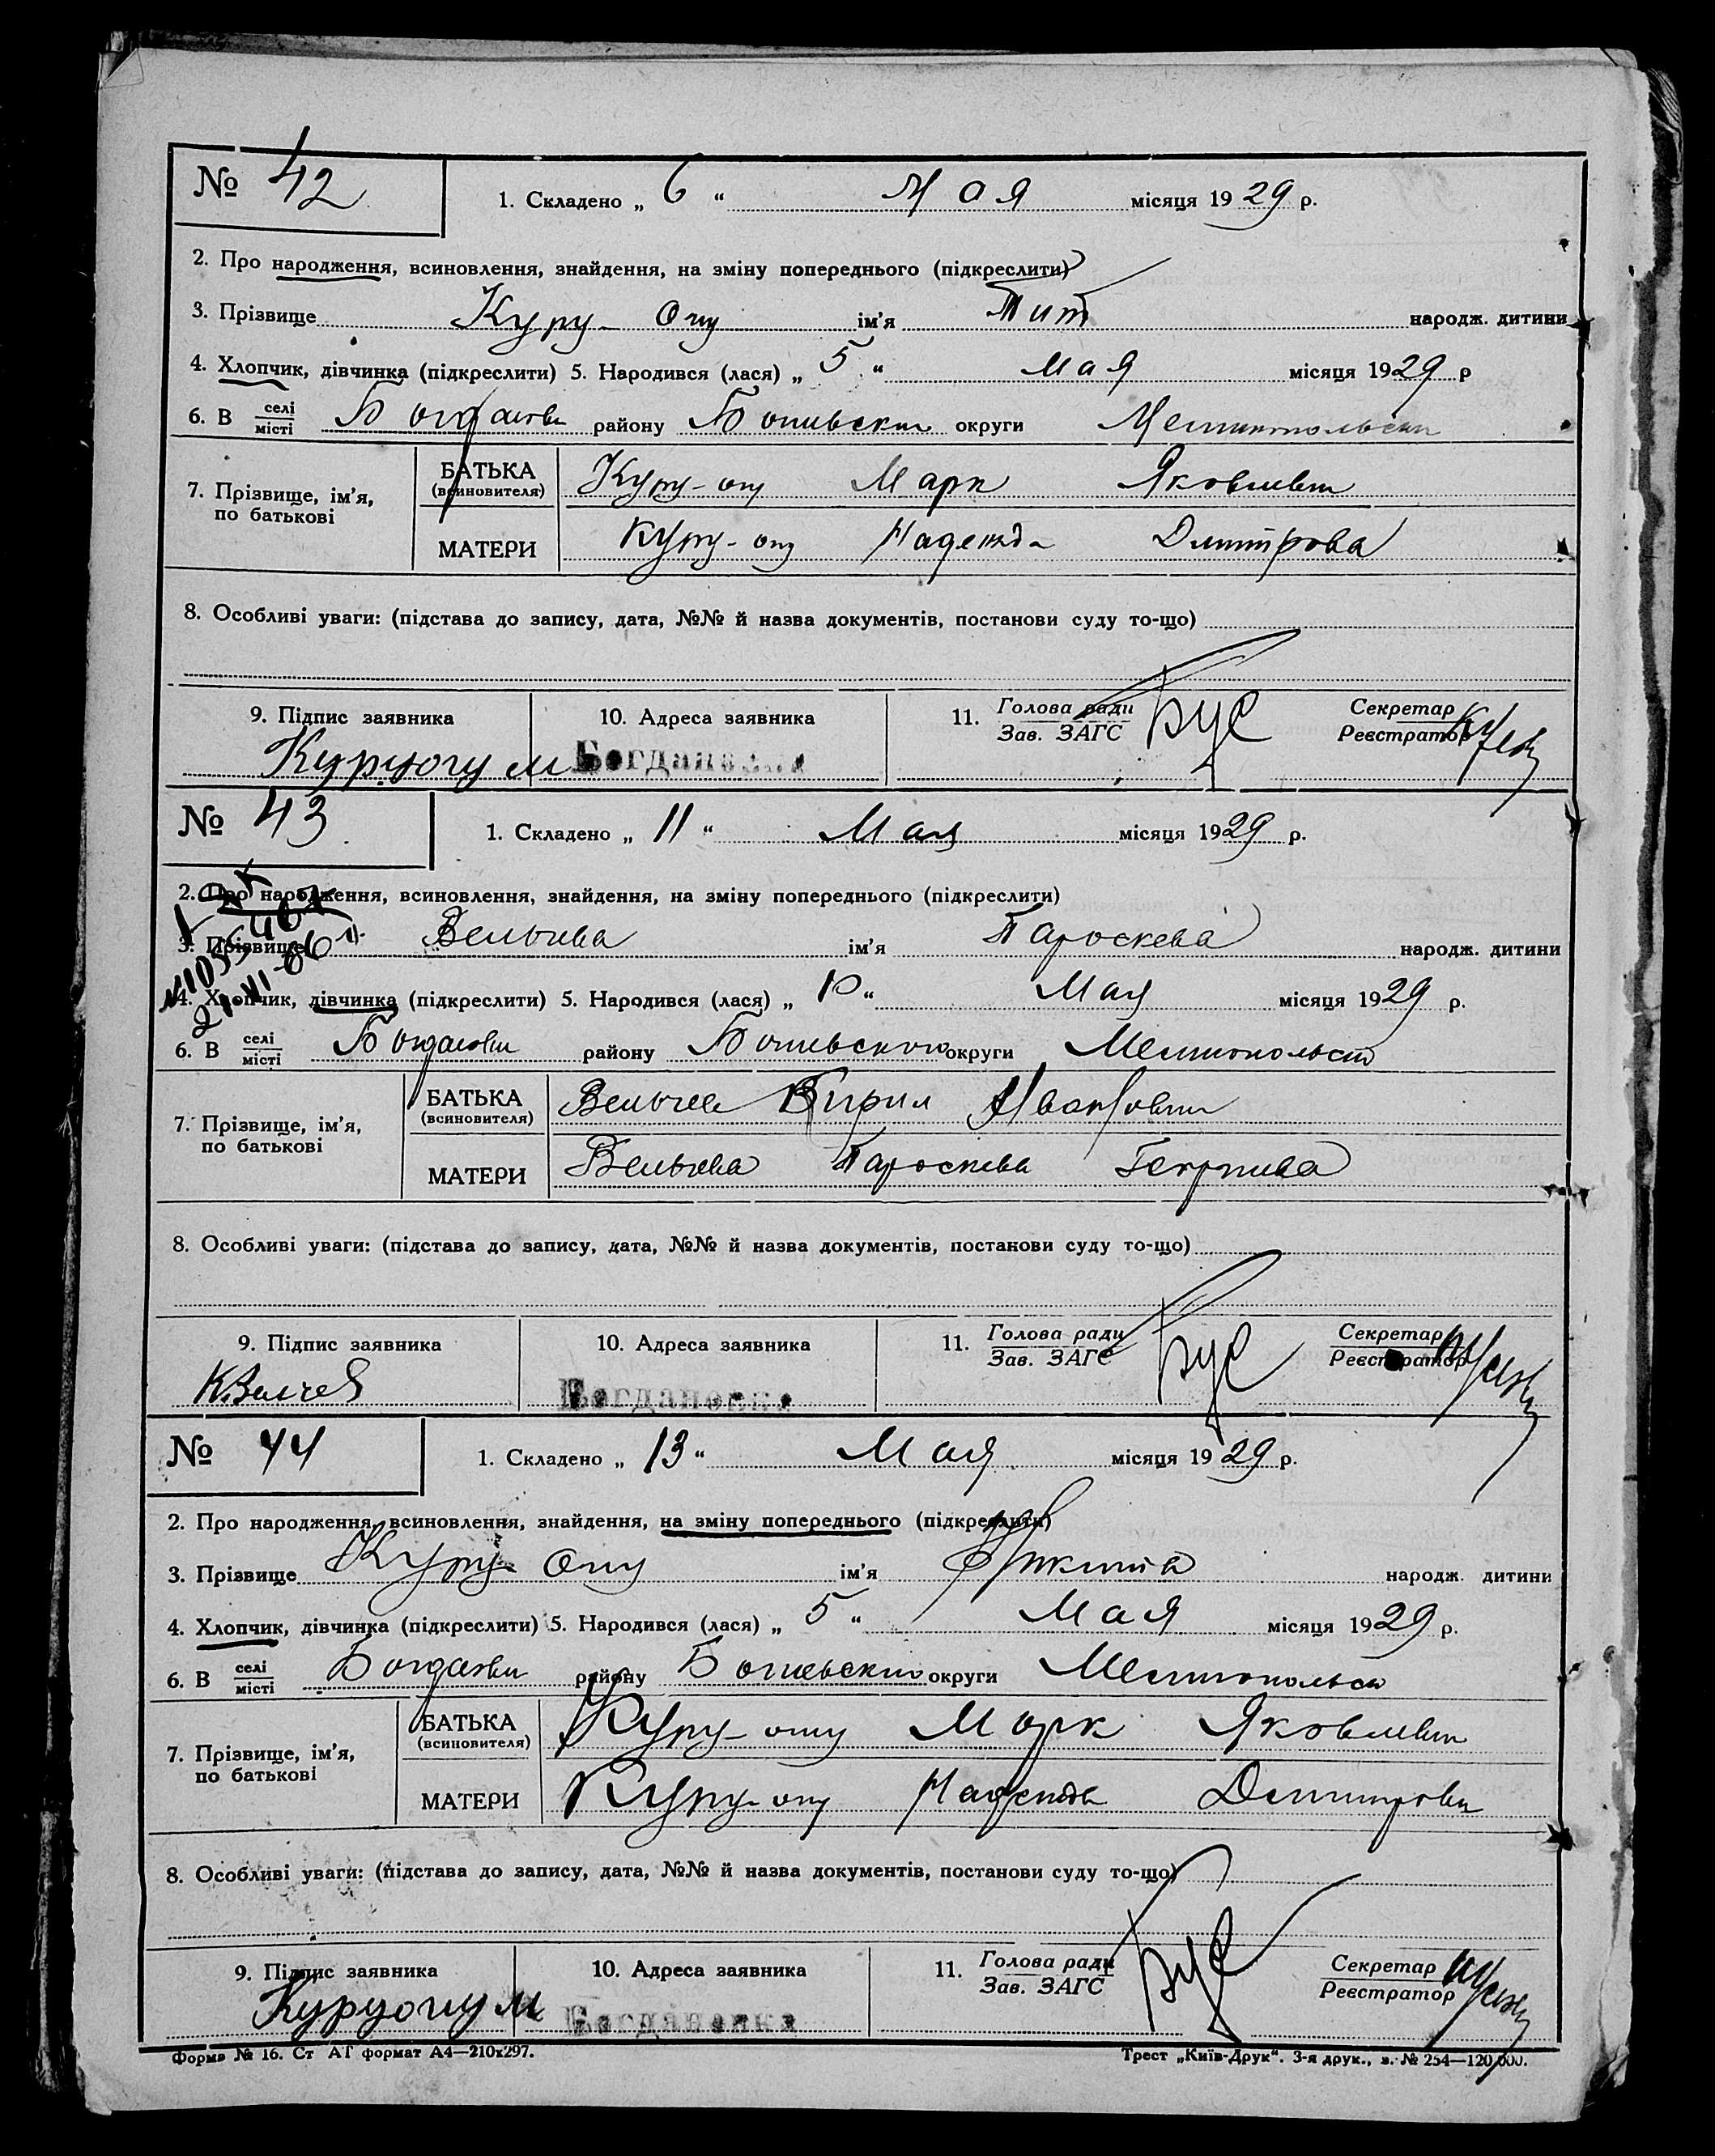 № 42 1. Складено „ 6 “ Мая місяця 1929 р.
2. Про народження, всиновлення, знайдення, на зміну попереднього (підкреслити)
3. Прізвище Куру-Огу ім'я Тит народж. дитини
4. Хлопчик, дівчинка (підкреслити) 5. Народився (лася) „ 5 “ мая місяця 1929 р
6. В селі місті району округи
7. Прізвище, ім'я, по батькові
БАТЬКА (всиновителя) Куру-огу Марк Яковлевич
МАТЕРИ Куру-огу Надежда Дмитрова
8. Особливі уваги: (підстава до запису, дата, №№ й назва документів, постанови суду то-що)
9. Підпис заявника 10. Адреса заявника 11. Голова ради Зав. ЗАГС Секретар Реєстратор
Куруогу М Богдановка
№ 43 1. Складено „ 11 “ Мая місяця 1929 р.
2. Про народження, всиновлення, знайдення, на зміну попереднього (підкреслити)
3. Прізвище Вельчева ім'я Пароскева народж. дитини
4. Хлопчик, дівчинка (підкреслити) 5. Народився (лася) „ 10 “ Мая місяця 1929 р.
6. В селі місті району округи
7. Прізвище, ім'я, по батькові
БАТЬКА (всиновителя) Вельчев Кирил
МАТЕРИ Вельчева Пароскева
8. Особливі уваги: (підстава до запису, дата, №№ й назва документів, постанови суду то-що)
9. Підпис заявника 10. Адреса заявника 11. Голова ради Зав. ЗАГС Секретар Реєстратор
Богдановка
№ 44 1. Складено „ 13 “ Мая місяця 1929 р.
2. Про народження, всиновлення, знайдення, на зміну попереднього (підкреслити)
3. Прізвище Куру-Огу ім'я народж. дитини
4. Хлопчик, дівчинка (підкреслити) 5. Народився (лася) „ 5 “ Мая місяця 1929 р.
6. В селі місті району округи
7. Прізвище, ім'я, по батькові
БАТЬКА (всиновителя) Куру-огу Марк Яковлевич
МАТЕРИ Куру-огу Надежда
8. Особливі уваги: (підстава до запису, дата, №№ й назва документів, постанови суду то-що)
9. Підпис заявника 10. Адреса заявника 11. Голова ради Зав. ЗАГС Секретар Реєстратор
Куруогу М Богдановка
Форма № 16. Ст АГ формат А4—210х297. Трест „Київ-Друк“. 3-я друк., з. № 254—120,000.